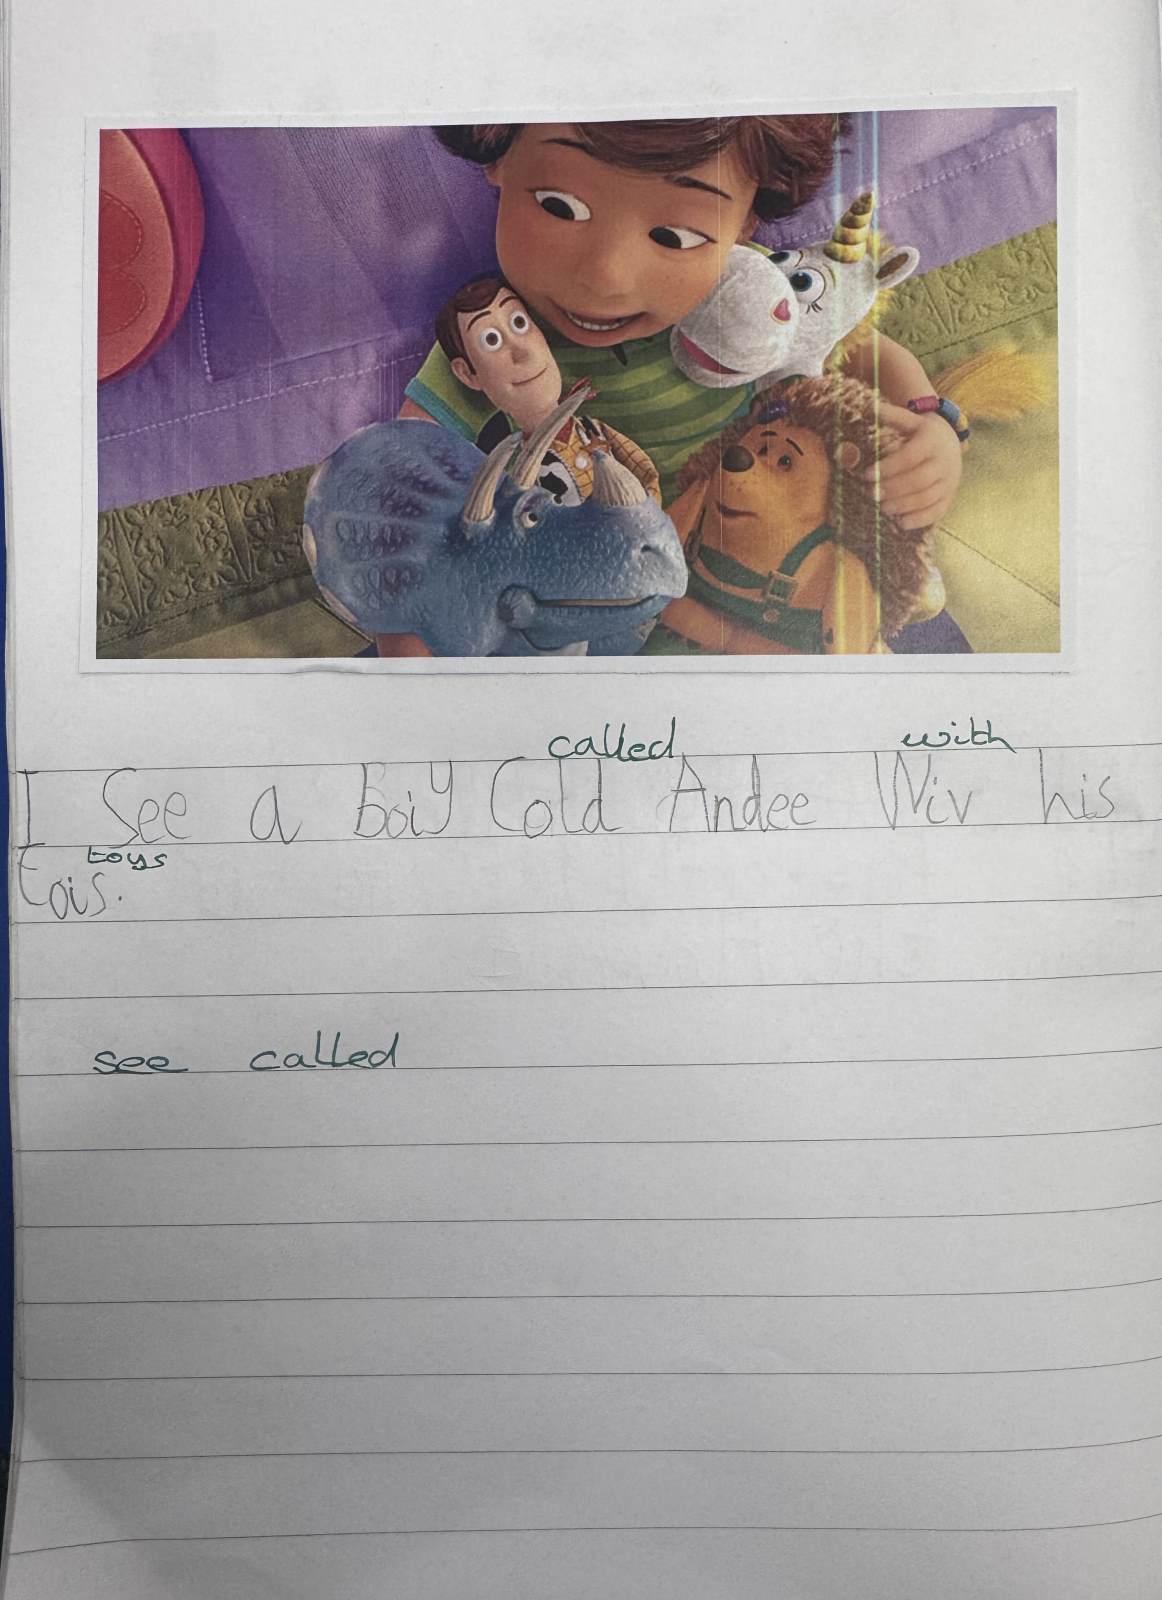 called with
I See a boiy Cold Andee Wiv his
toys
tois.
see called